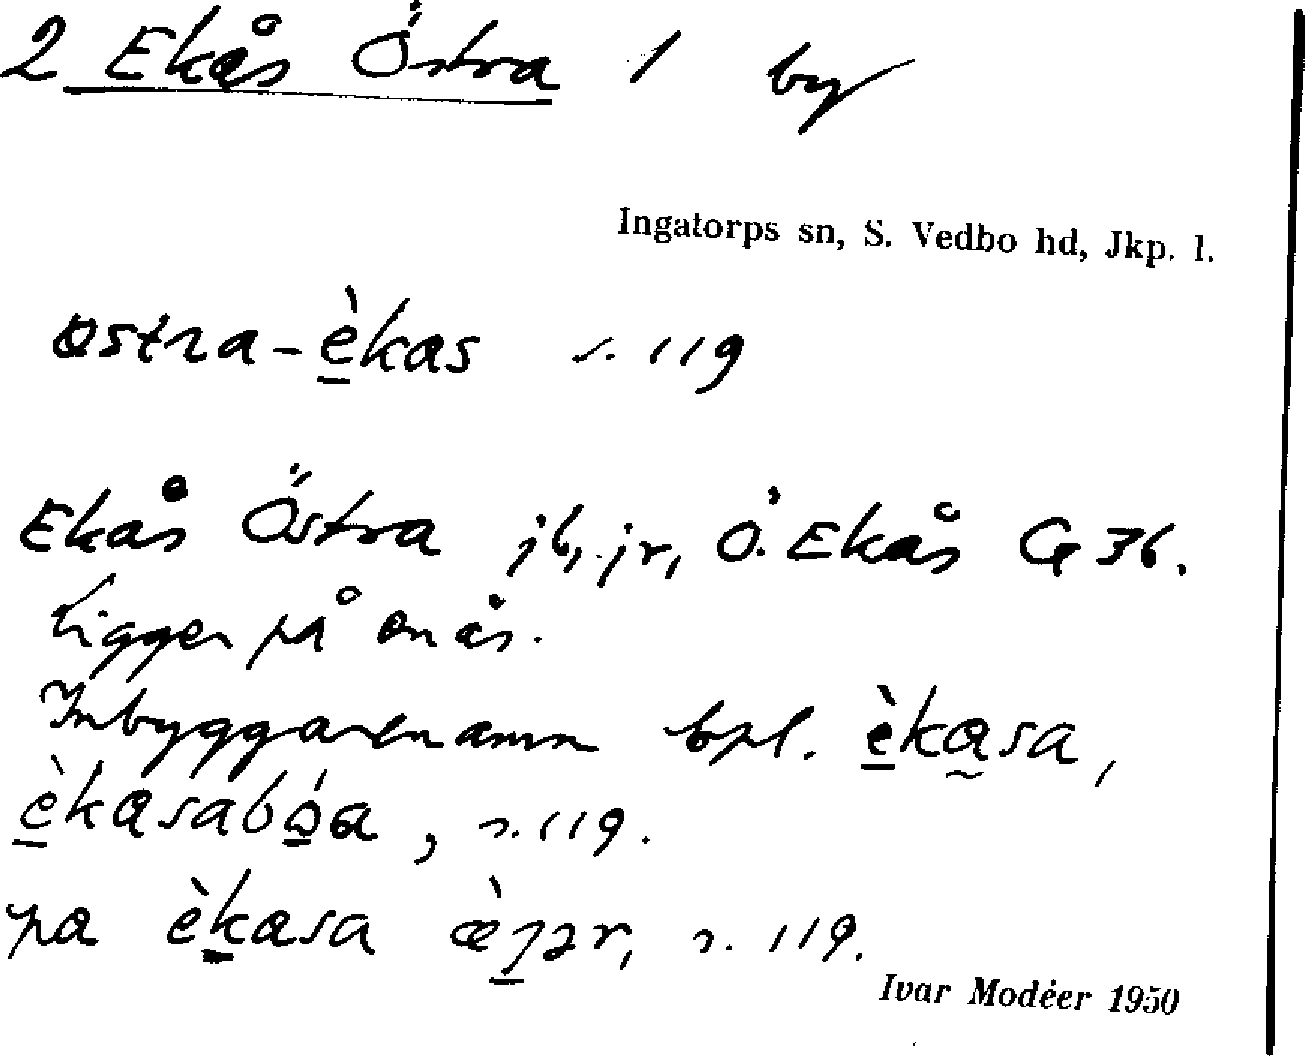 2 Ekås Östra 1 by
Ingatorps sn, S. Vedbo hd, Jkp. l.
østra-èkas s. 119
Ekås Östra jb, jr, Ö. Ekås G 36.
Ligger på en ås.
Inbyggarenamn bpl. èkasa,
èkasaboa, s. 119.
pa èkasa s. 119.
Ivar Modéer 1950